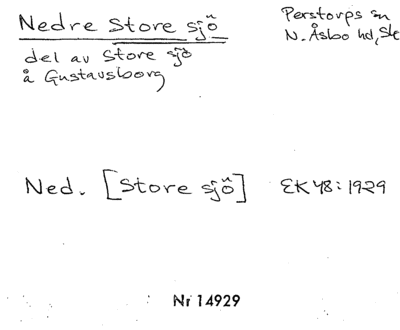 Nedre Store sjö
Perstorps sn
N. Åsbo hd, Sk
del av Store sjö
å Gustavsborg
Ned. [Store sjö] EK 48:1929
Nr 14929